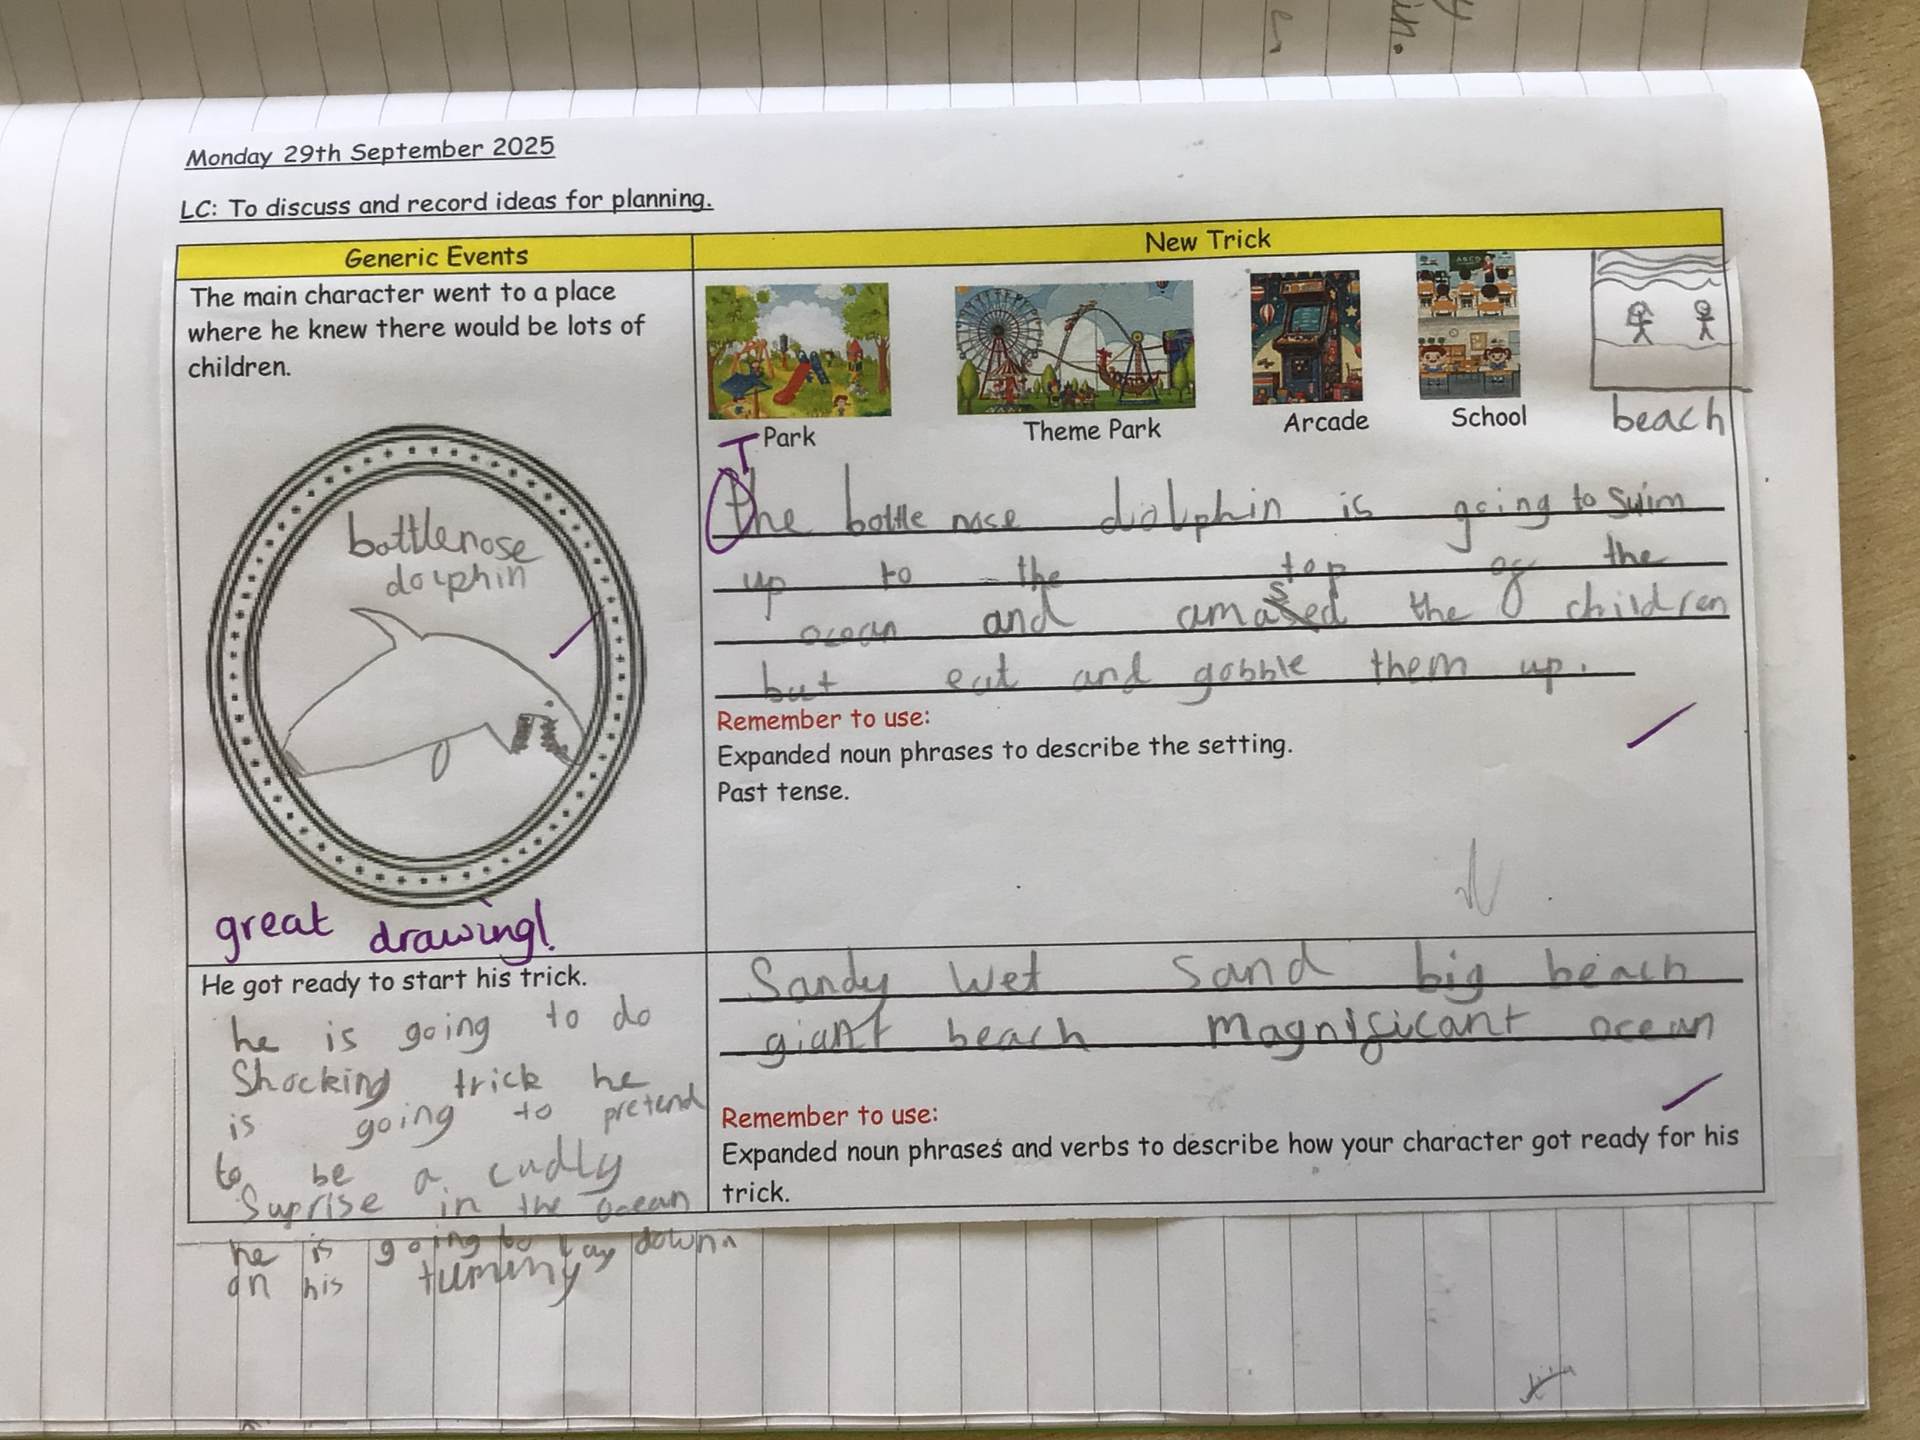 Monday 29th September 2025
LC: To discuss and record ideas for planning.
Generic Events
New Trick
The main character went to a place
where he knew there would be lots of
children.
bottlenose
dolphin
great drawing!
Park
Theme Park
Arcade
School
beach
T
the bottle nose dolphin is going to swim
up to the top of the
ocean and amased the children
but eat and gobble them up.
Remember to use:
Expanded noun phrases to describe the setting.
Past tense.
He got ready to start his trick.
he is going to do
Shocking trick he
is going to pretend
to be a cudly
Suprise in the ocean
he is going to lay down
on his tummy
Sandy wet sand big beach
giant beach magnificant ocean
Remember to use:
Expanded noun phrases and verbs to describe how your character got ready for his
trick.